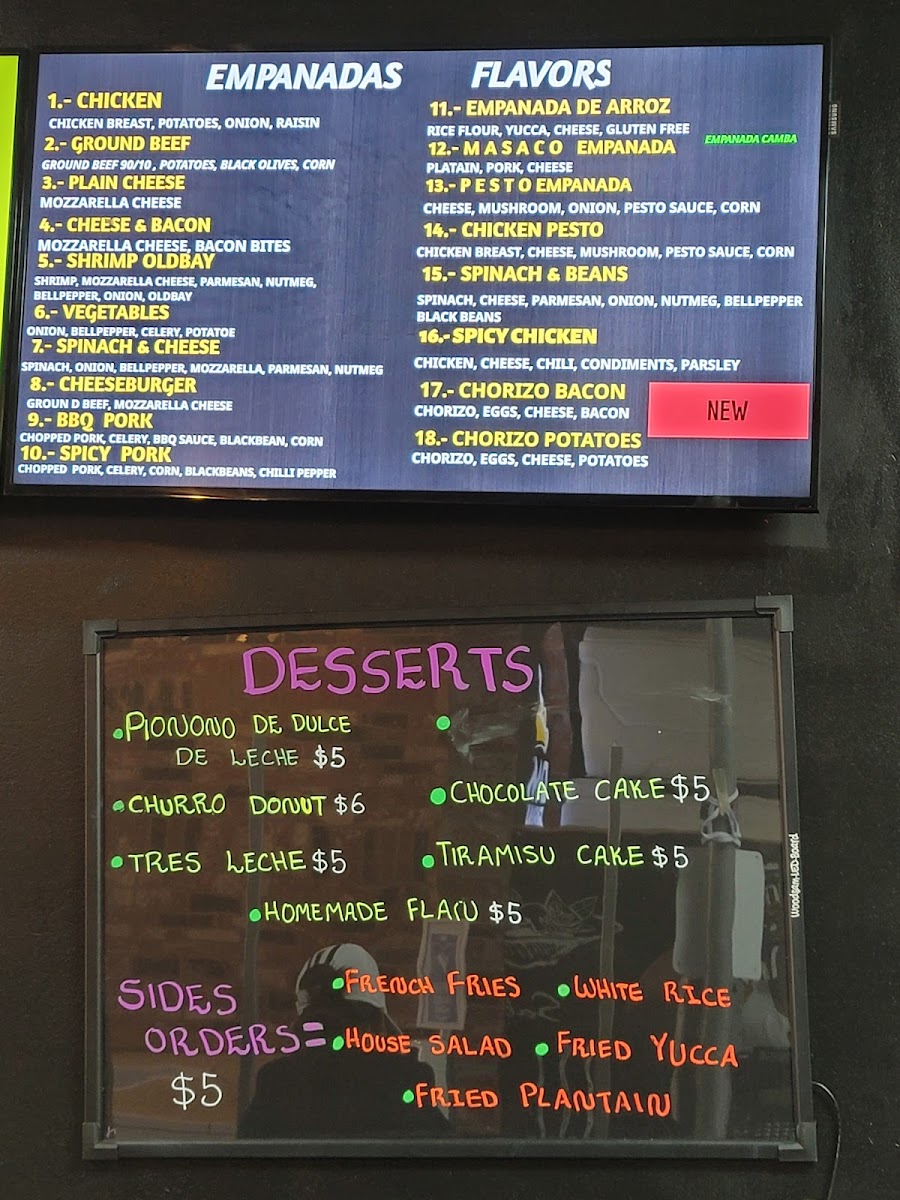 EMPANADAS FLAVORS
1.- CHICKEN
CHICKEN BREAST, POTATOES, ONION, RAISIN
2.- GROUND BEEF
GROUND BEEF 90/10 , POTATOES, BLACK OLIVES, CORN
3.- PLAIN CHEESE
MOZZARELLA CHEESE
4.- CHEESE & BACON
MOZZARELLA CHEESE, BACON BITES
5.- SHRIMP OLDBAY
SHRIMP, MOZZARELLA CHEESE, PARMESAN, NUTMEG,
BELLPEPPER, ONION, OLDBAY
6.- VEGETABLES
ONION, BELLPEPPER, CELERY, POTATOE
7.- SPINACH & CHEESE
SPINACH, ONION, BELLPEPPER, MOZZARELLA, PARMESAN, NUTMEG
8.- CHEESEBURGER
GROUN D BEEF, MOZZARELLA CHEESE
9.- BBQ PORK
CHOPPED PORK, CELERY, BBQ SAUCE, BLACKBEAN, CORN
10.- SPICY PORK
CHOPPED PORK, CELERY, CORN, BLACKBEANS, CHILLI PEPPER
11.- EMPANADA DE ARROZ
RICE FLOUR, YUCCA, CHEESE, GLUTEN FREE
12.- M A S A C O EMPANADA
EMPANADA CAMBA
PLATAIN, PORK, CHEESE
13.- P E S T O EMPANADA
CHEESE, MUSHROOM, ONION, PESTO SAUCE, CORN
14.- CHICKEN PESTO
CHICKEN BREAST, CHEESE, MUSHROOM, PESTO SAUCE, CORN
15.- SPINACH & BEANS
SPINACH, CHEESE, PARMESAN, ONION, NUTMEG, BELLPEPPER
BLACK BEANS
16.- SPICY CHICKEN
CHICKEN, CHEESE, CHILI, CONDIMENTS, PARSLEY
17.- CHORIZO BACON
CHORIZO, EGGS, CHEESE, BACON
NEW
18.- CHORIZO POTATOES
CHORIZO, EGGS, CHEESE, POTATOES
SAMSUNG
DESSERTS
PIONONO DE DULCE
DE LECHE $5
CHURRO DONUT $6
CHOCOLATE CAKE $5
TRES LECHE $5
TIRAMISU CAKE $5
HOMEMADE FLAN $5
SIDES
ORDERS=
$5
FRENCH FRIES
WHITE RICE
HOUSE SALAD
FRIED YUCCA
FRIED PLANTAIN
Woodsam LED Board